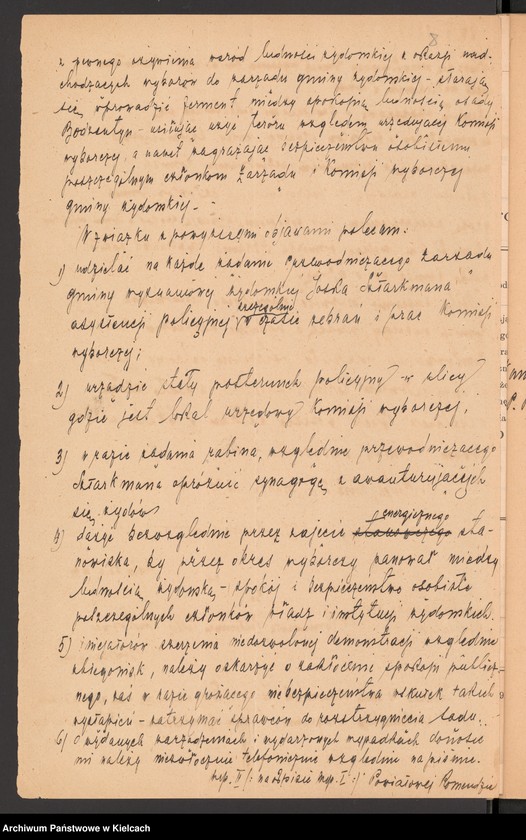 z pewnego ożywienia wśród ludności żydowskiej z okazji nad-
chodzących wyborów do zarządu gminy żydowskiej - starają
się wprowadzić ferment między spokojną ludnością osady
Bodzentyn - usiłując użyć teroru względem urzędującej Komisji
wyborczej, a nawet zagrażając bezpieczeństwu osobistemu
poszczególnym członkom Zarządu i Komisji wyborczej
gminy żydowskiej. -
W związku z powyższymi objawami polecam:
1) udzielać na każde żądanie Przewodniczącego Zarządu
gminy wyznaniowej żydowskiej Joska Sztarkmana
szczególnie
asystencji policyjnej w czasie zebrań i prac Komisji
wyborczej;
2) urządzić stały posterunek policyjny w ulicy
gdzie jest lokal urzędowy Komisji wyborczej.
3) w razie żądania rabina, względnie przewodniczącego
Sztarkmana opróżnić synagogę z awanturujących
się żydów
energicznego
4) dążyć bezwzględnie przez zajęcie stanowczego sta-
nowiska, by przez okres wyborczy panował między
ludnością żydowską - spokój i bezpieczeństwo osobiste
poszczególnych członków władz i instytucji żydowskich.
5) inicjatorów szerzenia niedozwolonej demonstracji względnie
zbiegowisk, należy oskarżyć o zakłócenie spokoju publicz-
nego, zaś w razie grożącego niebezpieczeństwa wskutek takich
wystąpień - zatrzymać sprawców do rozstrzygnięcia Sądu.
6) O wydanych zarządzeniach i wydarzonych wypadkach donosić
mi należy niezwłocznie telefonicznie względnie na piśmie.
egz. II /: na odpisie egz. I :/ Powiatowej Komendzie
Archiwum Państwowe w Kielcach